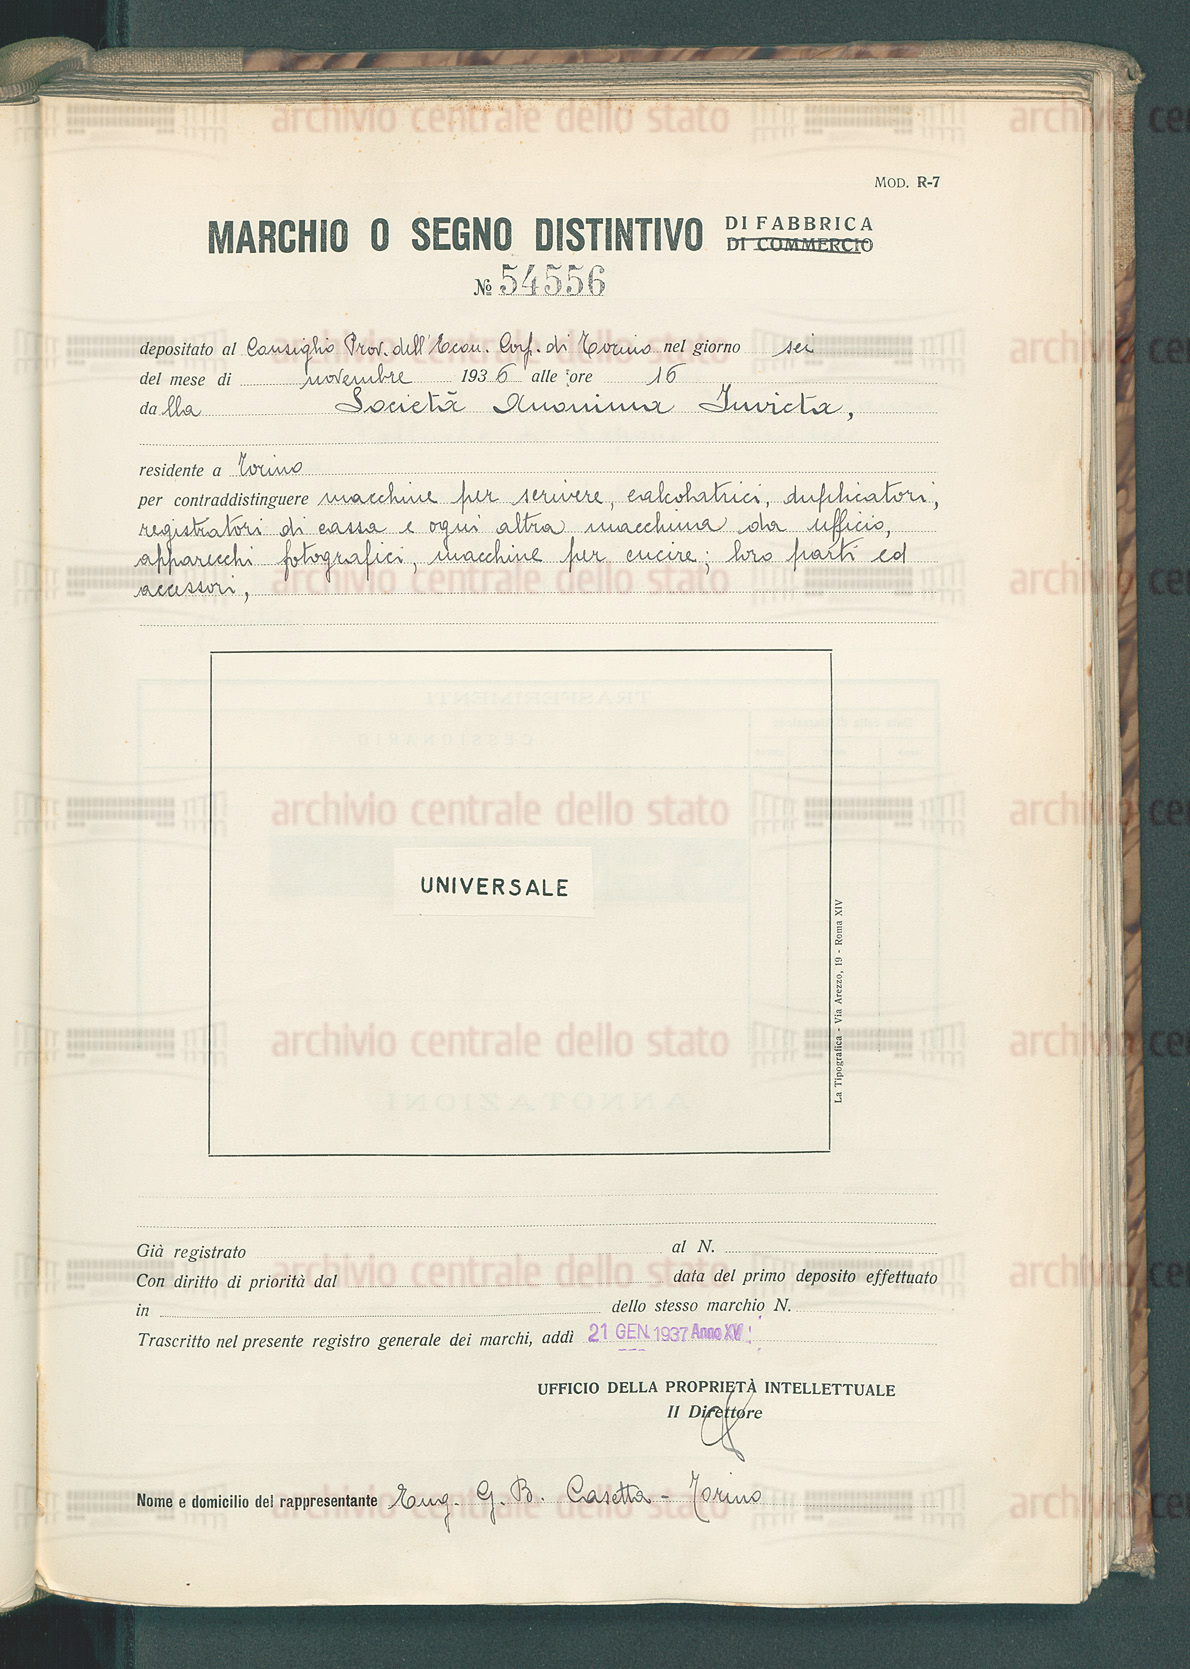 MOD. R-7
MARCHIO O SEGNO DISTINTIVO DI FABBRICA
DI COMMERCIO
№ 54556
depositato al Consiglio Prov. dell'Econ. Corp. di Torino nel giorno sei
del mese di novembre 1936 alle ore 16
dalla Società Anonima Invicta,
residente a Torino
per contraddistinguere macchine per scrivere, calcolatrici, duplicatori,
registratori di cassa e ogni altra macchina da ufficio,
apparecchi fotografici, macchine per cucire; loro parti ed
accessori,
UNIVERSALE
La Tipografica - Via Arezzo, 19 - Roma XIV
Già registrato al N.
Con diritto di priorità dal data del primo deposito effettuato
in dello stesso marchio N.
Trascritto nel presente registro generale dei marchi, addì 21 GEN. 1937 Anno XV
UFFICIO DELLA PROPRIETÀ INTELLETTUALE
Il Direttore
Nome e domicilio del rappresentante Ing. G. B. Casetta - Torino
archivio centrale dello stato